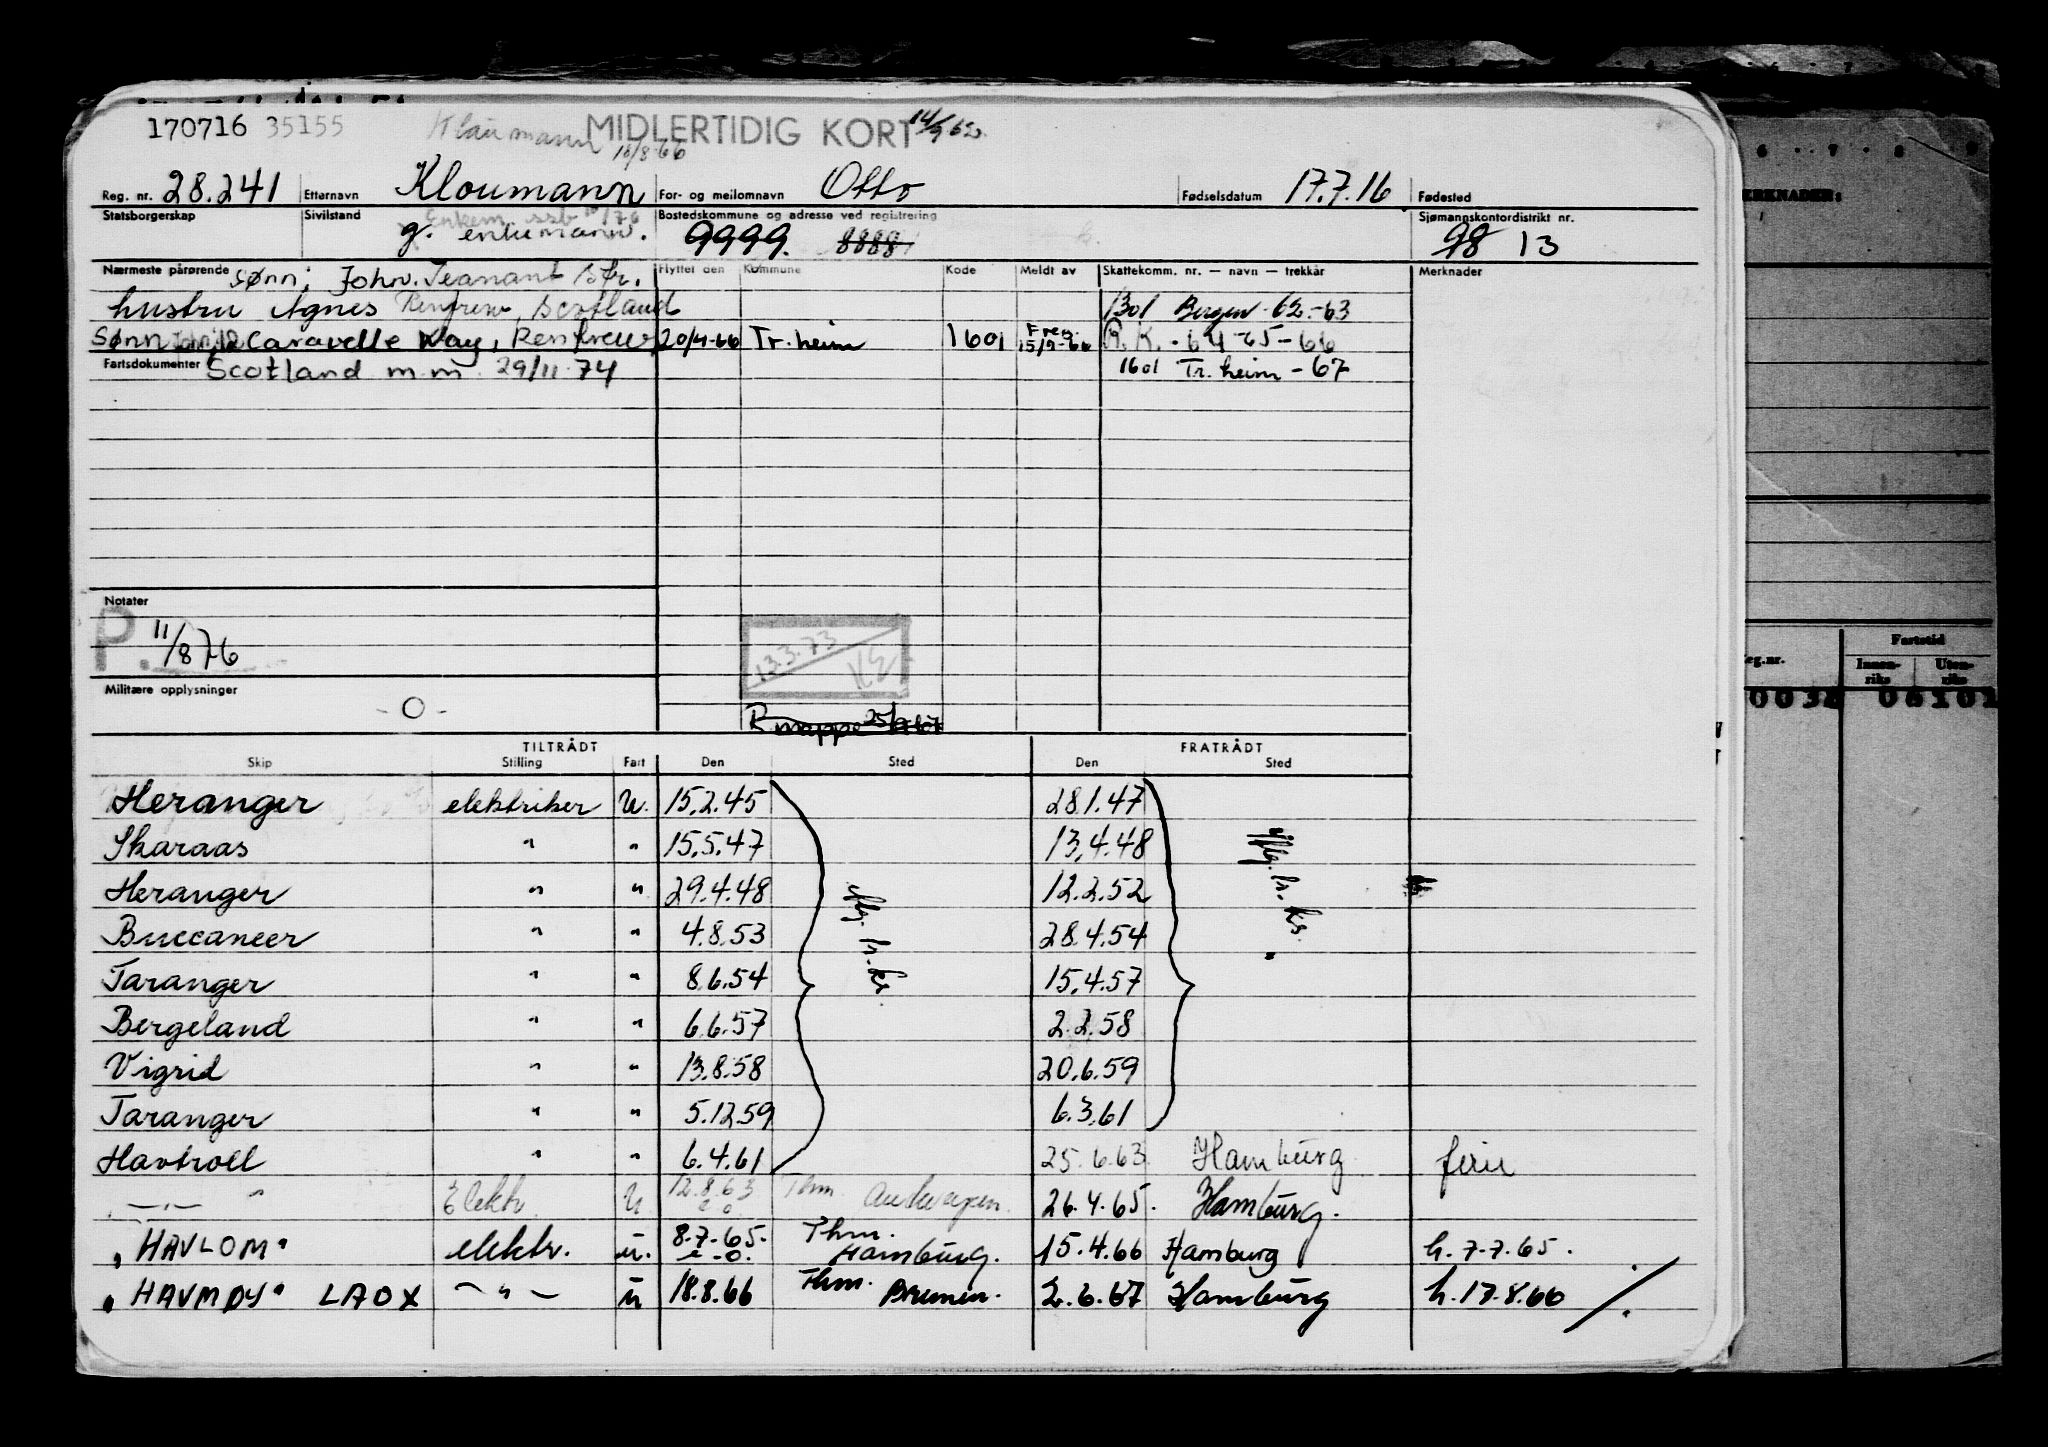 170716 35155 Klaumann MIDLERTIDIG KORT 14/9 62.
18/8-66
Reg. nr. 28.241 Etternavn Kloumann For- og mellomnavn Otto Fødselsdatum 17.7.16 Fødested
Statsborgerskap Sivilstand g. enkemann. Bostedskommune og adresse ved registrering 9999. 8888 Sjømannskontordistrikt nr. 98 13
Nærmeste pårørende Sønn: John. Flyttet den Kommune Kode Meldt av Skattekomm. nr. — navn — trekkår Merknader
hustru Agnes Renfrew, Scotland 1301 Bergen -62-63
Sønn Caravelle Way, Renfrew 20/4-66 Tr.heim 1601 Freg. 15/9-66 R.K. - 64-65-66
Fartsdokumenter Scotland m.m 29/11-74 1601 Tr.heim -67
Notater
P. 11/8 76
13.3.73 KE
Militære opplysninger - O -
R.mappe
TILTRÅDT FRATRÅDT
Skip Stilling Fart Den Sted Den Sted
Heranger elektriker U. 15.2.45 iflg. tr. ks. 28.1.47 iflg. tr. ks.
Skaraas " " 15.5.47 13.4.48
Heranger " " 29.4.48 12.2.52
Buccaneer " " 4.8.53 28.4.54
Taranger " " 8.6.54 15.4.57
Bergeland " " 6.6.57 2.2.58
Vigrid " " 13.8.58 20.6.59
Taranger " " 5.12.59 6.3.61
Havtroll " " 6.4.61 25.6.63 Hamburg ferie
— " — " Elektr. U. 12.8.63 Thm. Antwerpen. 26.4.65. Hamburg.
"HAVLOM" elektr. u. 8.7.65. Thm. Hamburg. 15.4.66 Hamburg h. 7.7.65.
"HAVMØY" LAOX — " — u 18.8.66 Thm. Bremen. 2.6.67 Hamburg h. 17.8.66
6 . . 7 . 8
MERKNADER:
Reg.nr. Fartstid
Innenriks Utenriks